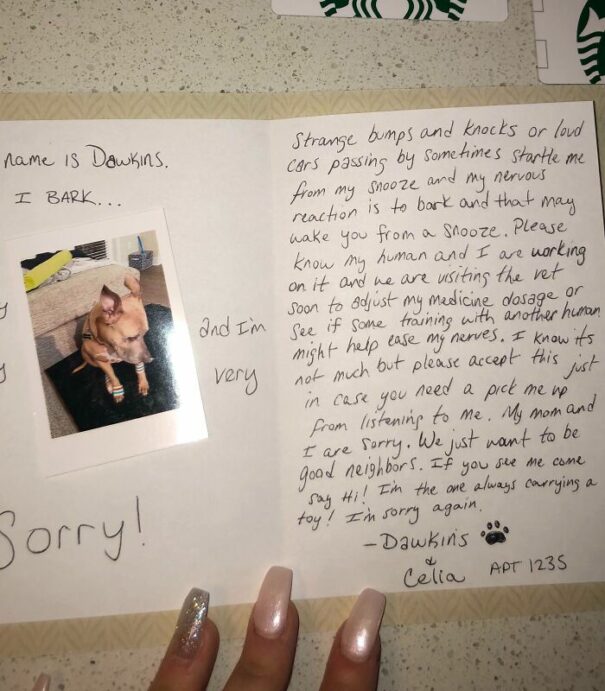 name is Dawkins.
I BARK...
and I'm
very
Sorry!
Strange bumps and knocks or loud
cars passing by sometimes startle me
from my snooze and my nervous
reaction is to bark and that may
wake you from a snooze. Please
know my human and I are working
on it and we are visiting the vet
soon to adjust my medicine dosage or
see if some training with another human
might help ease my nerves. I know it's
not much but please accept this just
in case you need a pick me up
from listening to me. My mom and
I are sorry. We just want to be
good neighbors. If you see me come
say Hi! I'm the one always carrying a
toy! I'm sorry again.
- Dawkins
&
Celia APT 1235